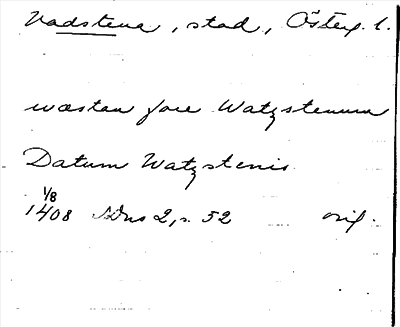 Vadstena, stad, Östergl. l.
wæstan fore Watzstenum
Datum Watzstenis
1/8
1408 SDns 2, s. 52 orig.